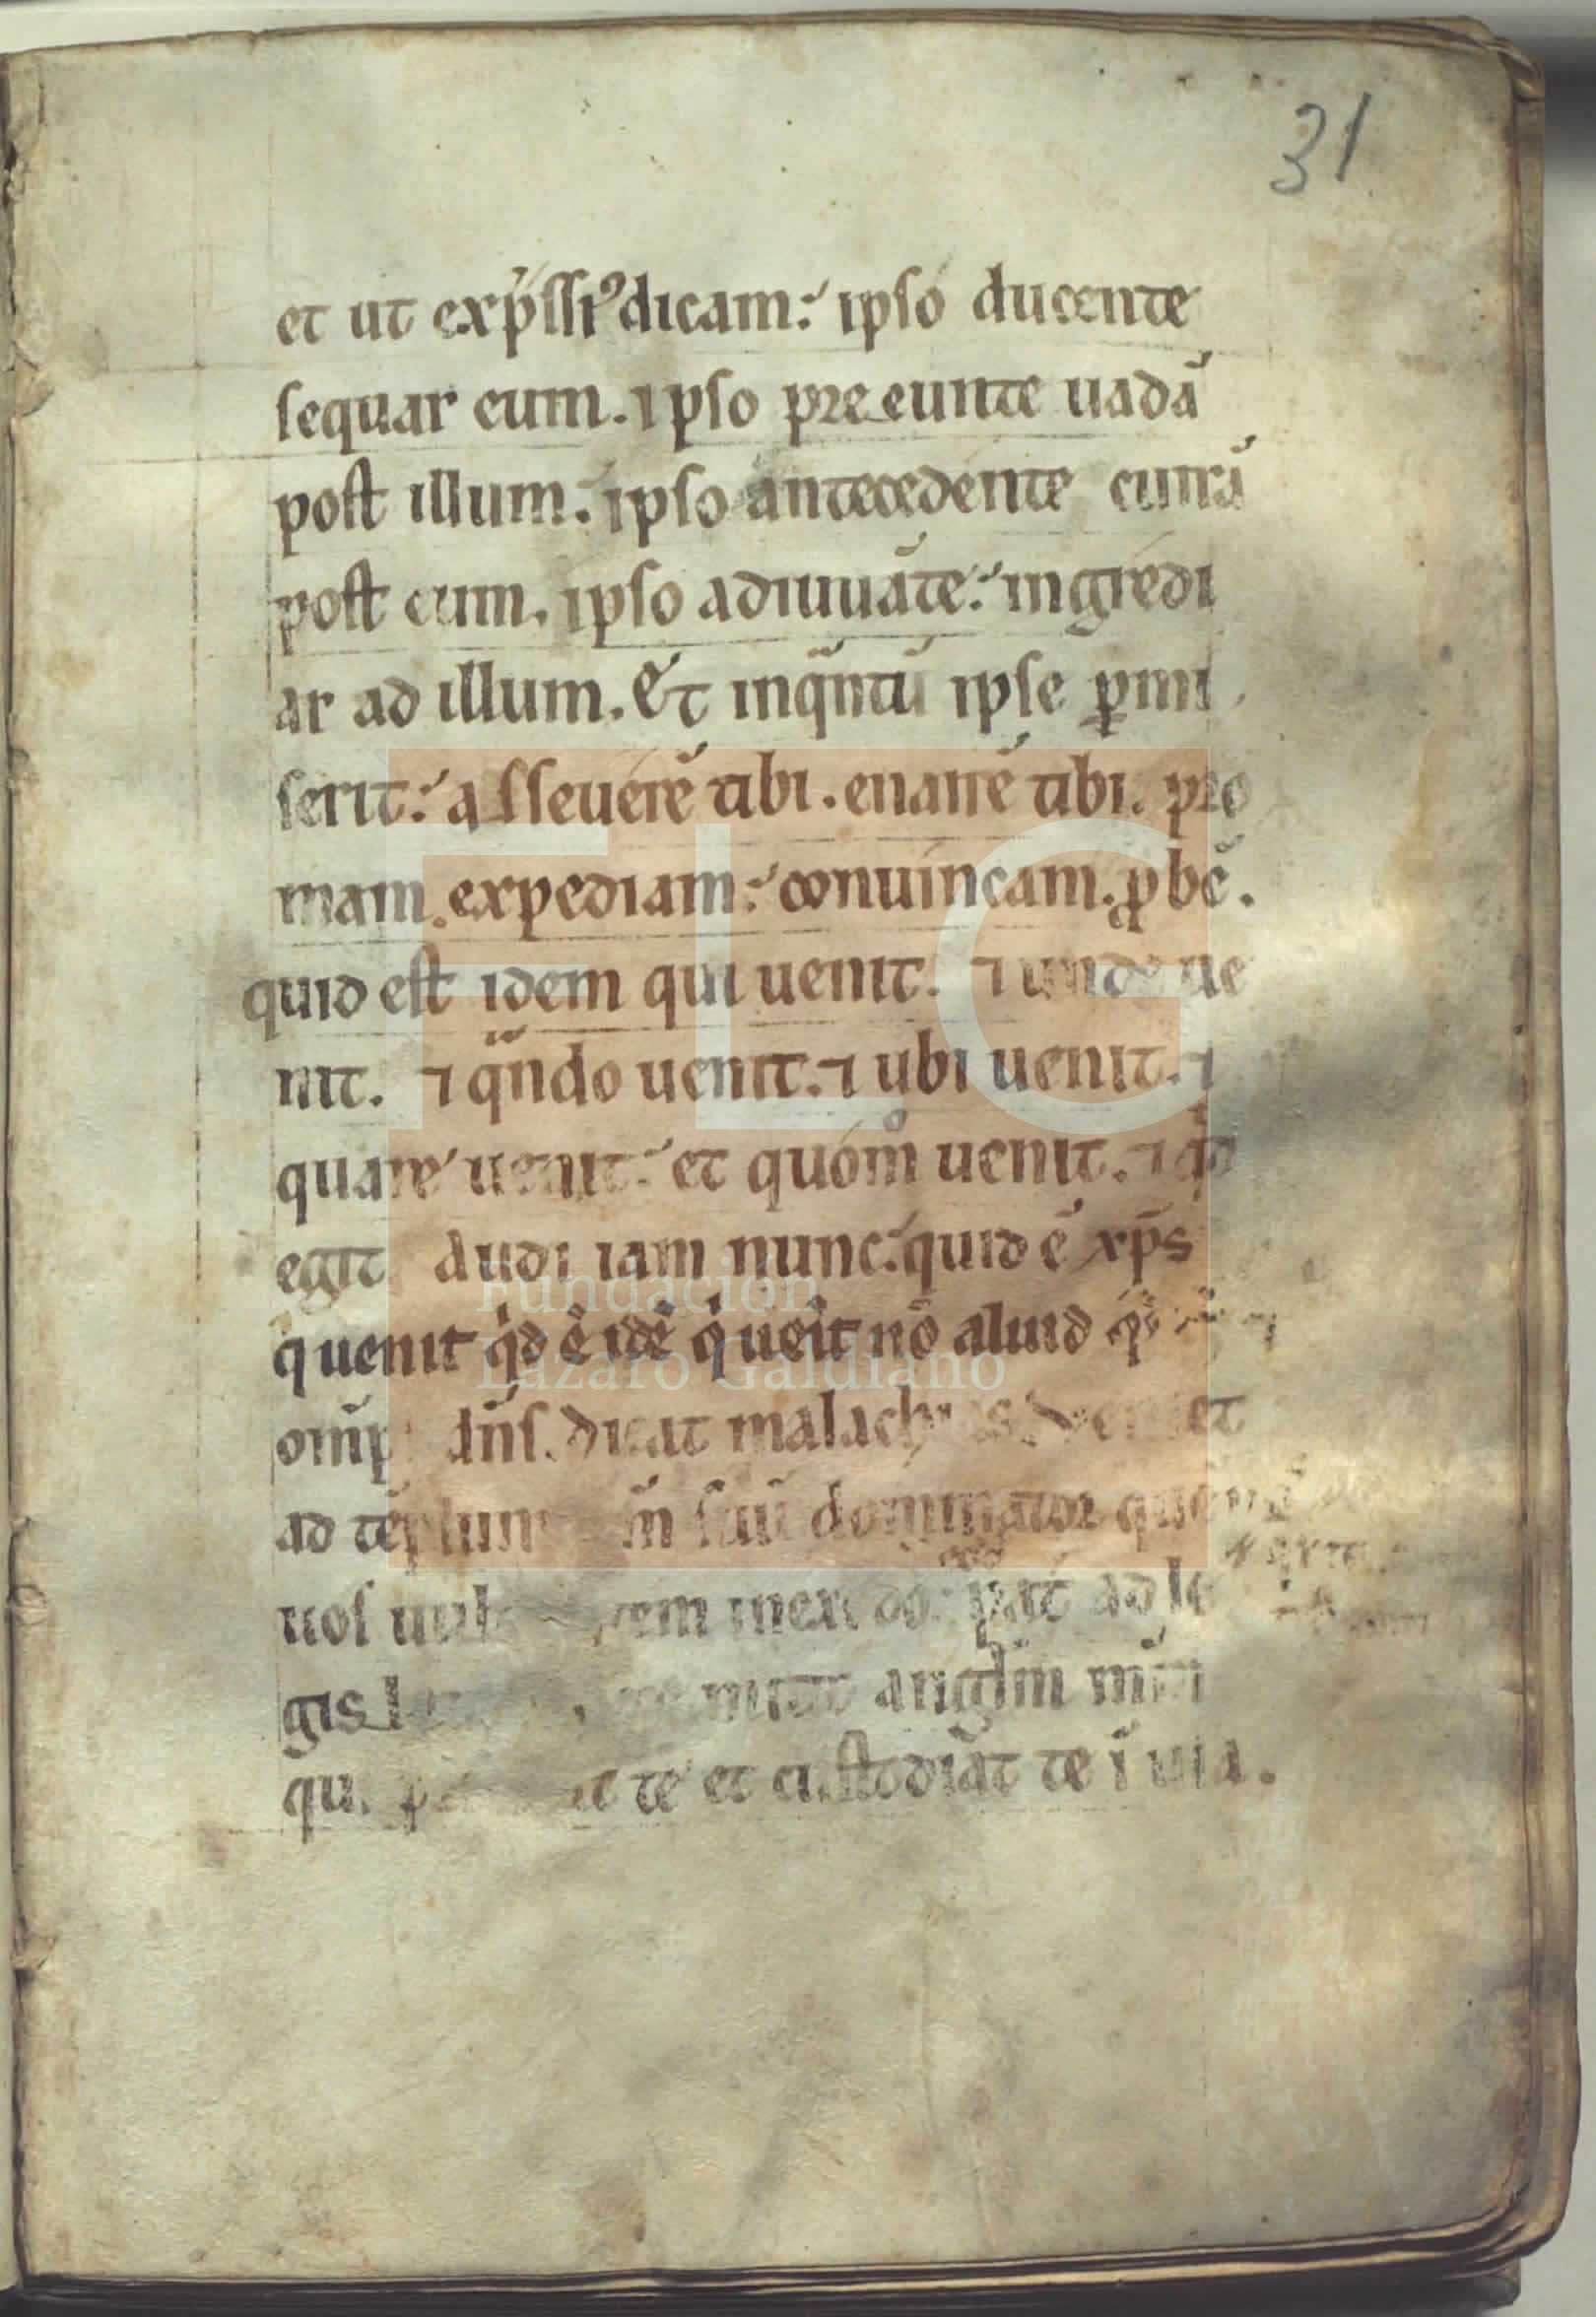 31
et ut exp̄ssi⁹ dicam: ipso ducente
sequar eum. ipso pre eunte uadā
post illum: ipso antecedente currā
post eum. ipso adiuuāte: ingredi
ar ad illum. Et inq̄ntū ipse ꝑmi
serit: asseuerē tibi. enarrē tibi. pro
mam. expediam: conuincam. ꝓbē.
quid est idem qui uenit. ⁊ unde ue
nit. ⁊ qn̄do uenit. ⁊ ubi uenit. ⁊
quare uenit: et quom̊ uenit. ⁊ qd
egit Audi iam nunc: quid ē xp̄s
q uenit qd ē idē q ueīt nō aliud
dn̄s. dicat malachias. Veniet
ad tēplum suū dominator que
uos ad le
gis angl̄m
te et custodiat te ī uia.
FLG
Fundación
Lázaro Galdiano